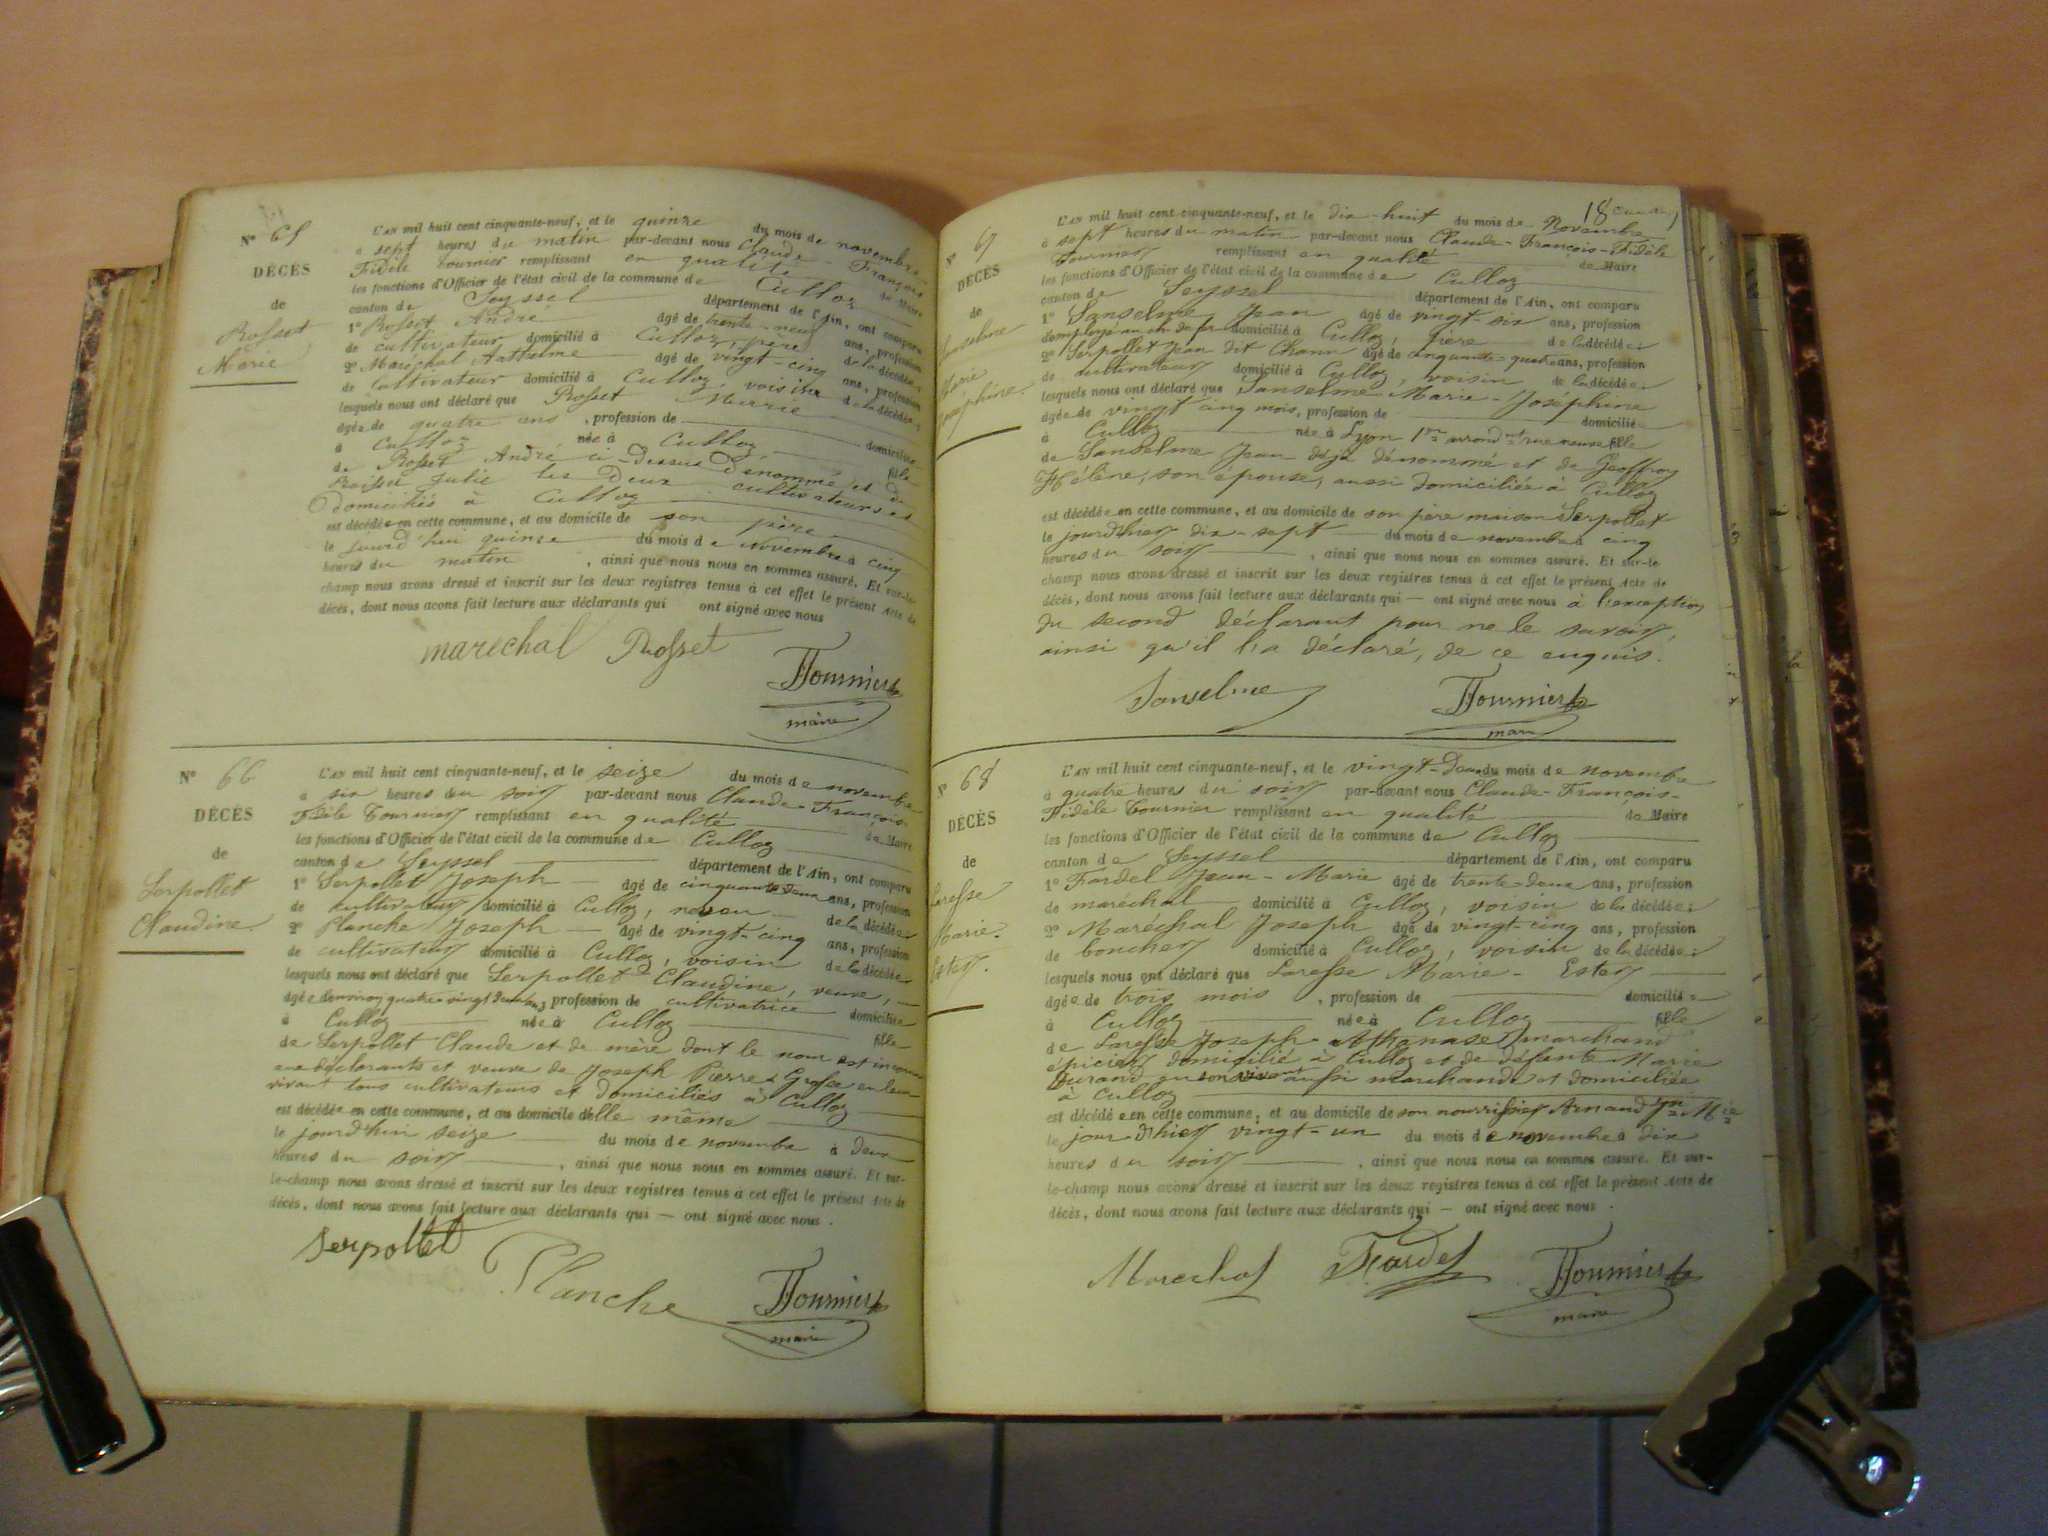 N° 65
DÉCÈS
de
Rosset
Marie
L'AN mil huit cent cinquante-neuf, et le quinze du mois de novembre
à sept heures du matin par-devant nous Claude-François
Fidèle Tournier remplissant en qualité de Maire
les fonctions d'Officier de l'état civil de la commune de Culloz
canton de Seyssel département de l'Ain, ont comparu
1° Rosset André âgé de trente-neuf ans, profession
de cultivateur domicilié à Culloz, père de la décédée;
2° Maréchal Anthelme âgé de vingt-cinq ans, profession
de cultivateur domicilié à Culloz, voisin de la décédée;
lesquels nous ont déclaré que Rosset Marie
âgée de quatre ans, profession de domiciliée
à Culloz née à Culloz fille
de Rosset André ci dessus dénommé et de
Julie les deux cultivateurs et
domiciliés à Culloz
est décédée en cette commune, et au domicile de son père
le jourd'hui quinze du mois de novembre à cinq
heures du matin, ainsi que nous nous en sommes assuré. Et sur-le-
champ nous avons dressé et inscrit sur les deux registres tenus à cet effet le présent Acte de
décès, dont nous avons fait lecture aux déclarants qui ont signé avec nous
marechal Rosset
Tournier
maire
N° 66
DÉCÈS
de
Serpollet
Claudine.
L'AN mil huit cent cinquante-neuf, et le seize du mois de novembre
à six heures du soir par-devant nous Claude-François-
Fidèle Tournier remplissant en qualité de Maire
les fonctions d'Officier de l'état civil de la commune de Culloz
canton de Seyssel département de l'Ain, ont comparu
1° Serpollet Joseph âgé de cinquante-deux ans, profession
de cultivateur domicilié à Culloz, neveu de la décédée;
2° Planche Joseph âgé de vingt-cinq ans, profession
de cultivateur domicilié à Culloz, voisin de la décédée;
lesquels nous ont déclaré que Serpollet Claudine, veuve,
âgée d'environ quatre-vingt deux ans, profession de cultivatrice domiciliée
à Culloz née à Culloz fille
de Serpollet Claude et de mère dont le nom est inconnu
aux déclarants et veuve de Joseph Pierre Grosse en leur
vivant tous cultivateurs et domiciliés à Culloz
est décédée en cette commune, et au domicile d'elle même
le jourd'hui seize du mois de novembre à deux
heures du soir, ainsi que nous nous en sommes assuré. Et sur-
le-champ nous avons dressé et inscrit sur les deux registres tenus à cet effet le présent Acte de
décès, dont nous avons fait lecture aux déclarants qui — ont signé avec nous.
Serpollet
Planche
Tournier
maire
18
N° 67
DÉCÈS
de
Sanselme
Marie
Joséphine.
L'AN mil huit cent cinquante-neuf, et le dix-huit du mois de Novembre
à sept heures du matin par-devant nous Claude-François-Fidèle
Tournier remplissant en qualité de Maire
les fonctions d'Officier de l'état civil de la commune de Culloz
canton de Seyssel département de l'Ain, ont comparu
1° Sanselme Jean âgé de vingt-six ans, profession
d'employé au ch. de fer domicilié à Culloz, père de la décédée;
2° Serpollet Jean dit Chann âgé de cinquante-quatre ans, profession
de cultivateur domicilié à Culloz, voisin de la décédée;
lesquels nous ont déclaré que Sanselme Marie-Joséphine
âgée de vingt cinq mois, profession de domiciliée
à Culloz née à Lyon 1er arrondnt rue neuve fille
de Sanselme Jean déjà dénommé et de Geoffroy
Hélène, son épouse, aussi domiciliée à Culloz
est décédée en cette commune, et au domicile de son père maison Serpollet
le jourd'hier dix-sept du mois de novembre à cinq
heures du soir, ainsi que nous nous en sommes assuré. Et sur-le-
champ nous avons dressé et inscrit sur les deux registres tenus à cet effet le présent Acte de
décès, dont nous avons fait lecture aux déclarants qui — ont signé avec nous à l'exception
du second déclarant pour ne le savoir,
ainsi qu'il l'a déclaré, de ce enquis.
Sanselme Tournier
maire
N° 68
DÉCÈS
de
Laresse
Marie
Ester.
L'AN mil huit cent cinquante-neuf, et le vingt-deux du mois de novembre
à quatre heures du soir par-devant nous Claude-François-
Fidèle Tournier remplissant en qualité de Maire
les fonctions d'Officier de l'état civil de la commune de Culloz
canton de Seyssel département de l'Ain, ont comparu
1° Fardel Jean-Marie âgé de trente-deux ans, profession
de maréchal domicilié à Culloz, voisin de la décédée;
2° Maréchal Joseph âgé de vingt-cinq ans, profession
de boucher domicilié à Culloz, voisin de la décédée;
lesquels nous ont déclaré que Laresse Marie-Ester
âgée de trois mois, profession de domiciliée
à Culloz née à Culloz fille
de Laresse Joseph-Athanase marchand
épicier domicilié à Culloz et de défunte Marie
Durand en son vivant aussi marchande et domiciliée
à Culloz
est décédée en cette commune, et au domicile de son nourrissier Arnaud Jn Mie
le jour d'hier vingt-un du mois de novembre à dix
heures du soir, ainsi que nous nous en sommes assuré. Et sur-
le-champ nous avons dressé et inscrit sur les deux registres tenus à cet effet le présent Acte de
décès, dont nous avons fait lecture aux déclarants qui — ont signé avec nous.
Marechal Fardel Tournier
maire